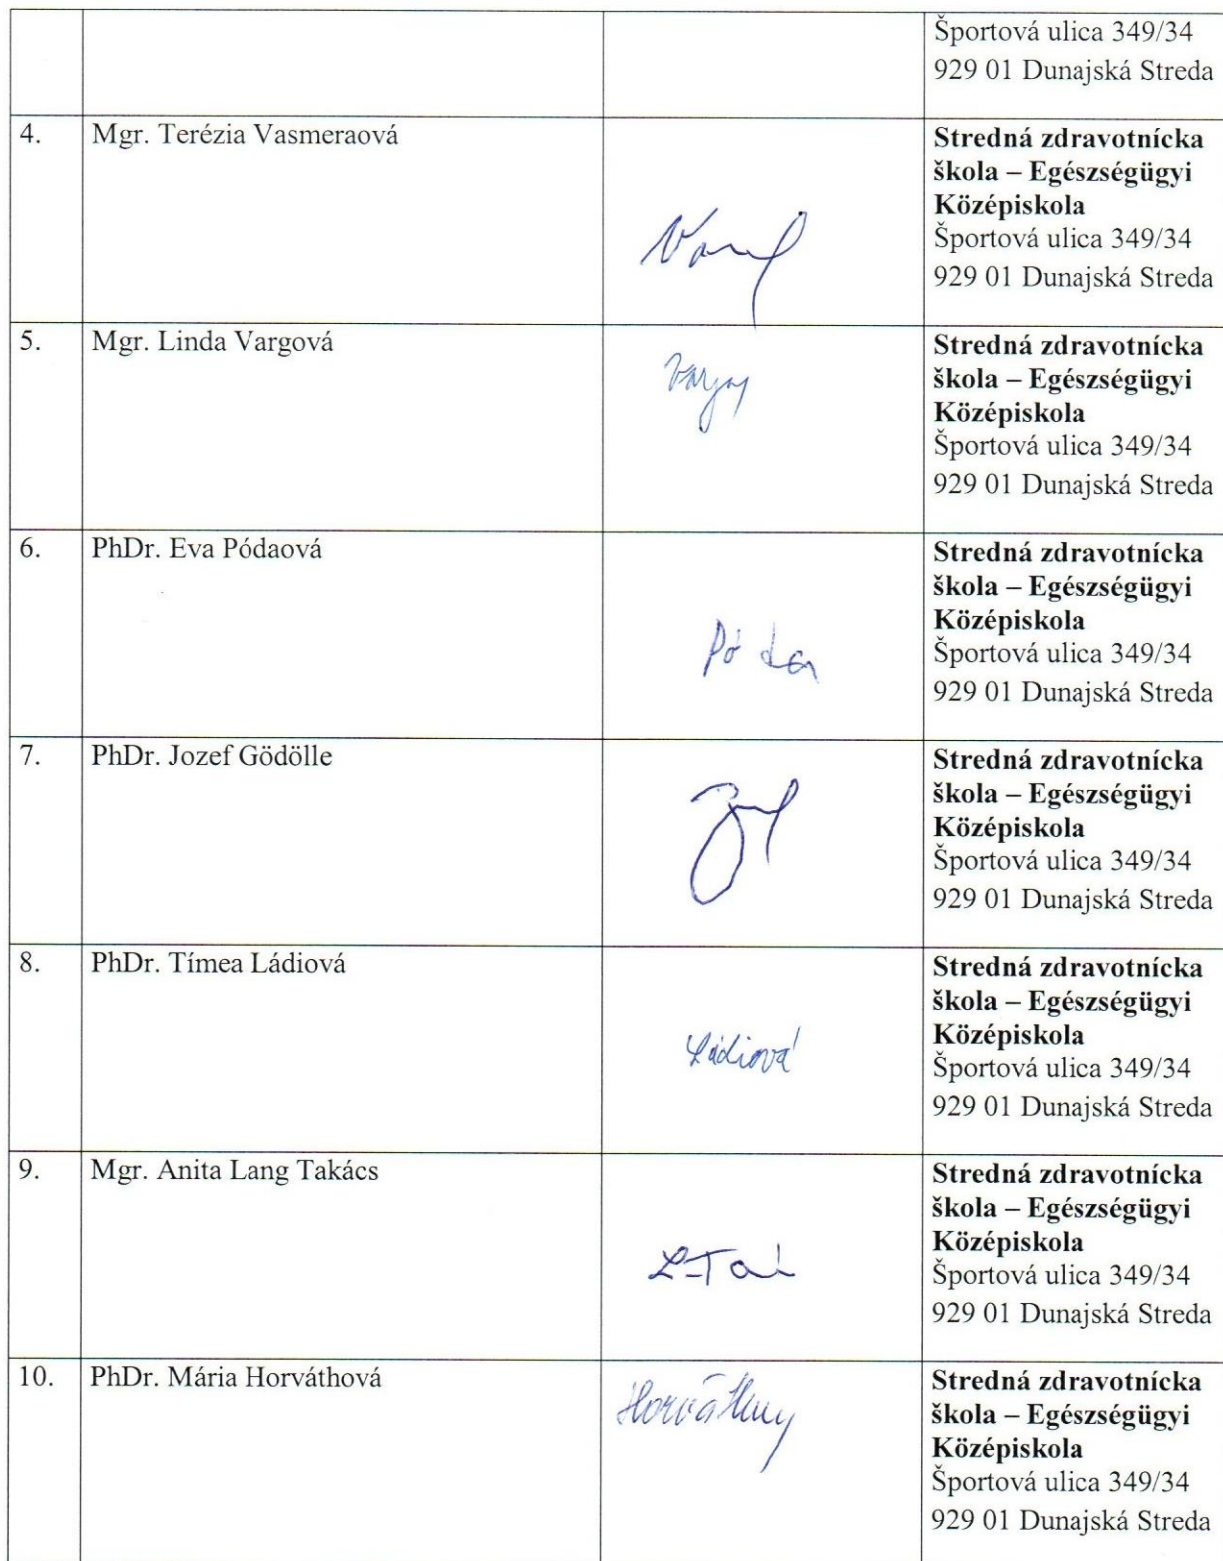 Športová ulica 349/34
929 01 Dunajská Streda
4. Mgr. Terézia Vasmeraová
Stredná zdravotnícka
škola – Egészségügyi
Középiskola
Športová ulica 349/34
929 01 Dunajská Streda
5. Mgr. Linda Vargová
Stredná zdravotnícka
škola – Egészségügyi
Középiskola
Športová ulica 349/34
929 01 Dunajská Streda
6. PhDr. Eva Pódaová
Stredná zdravotnícka
škola – Egészségügyi
Középiskola
Póda
Športová ulica 349/34
929 01 Dunajská Streda
7. PhDr. Jozef Gödölle
Stredná zdravotnícka
škola – Egészségügyi
Középiskola
Športová ulica 349/34
929 01 Dunajská Streda
8. PhDr. Tímea Ládiová
Stredná zdravotnícka
škola – Egészségügyi
Középiskola
Ládiová
Športová ulica 349/34
929 01 Dunajská Streda
9. Mgr. Anita Lang Takács
Stredná zdravotnícka
škola – Egészségügyi
Középiskola
Športová ulica 349/34
929 01 Dunajská Streda
10. PhDr. Mária Horváthová
Stredná zdravotnícka
škola – Egészségügyi
Középiskola
Športová ulica 349/34
929 01 Dunajská Streda